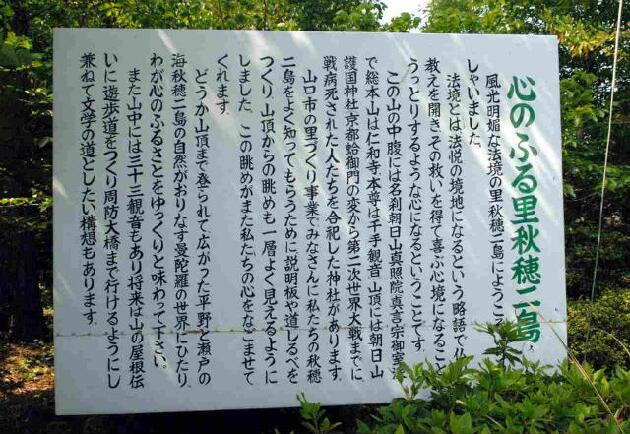 心のふる里秋穂二島
風光明媚な法境の里秋穂二島にようこそ
しゃいました。
法境とは法悦の境地になるという略語で仏
教えを開きその救いを得て喜ぶ心境になること
うっとりするような心になるということです。
この山の中腹には名刹朝日山真照院真言宗御室派
で総本山は仁和寺本尊は千手観音 山頂には朝日山
護国神社京都蛤御門の変から第二次世界大戦までに
戦病死された人たちを合祀した神社があります。
山口市の里づくり事業でみなさんに私たちの秋穂
二島をよく知ってもらうために説明板や道しるべを
つくり、山頂からの眺めも一層よく見えるように
しました。この眺めがまた私たちの心をなごませて
くれます。
どうか山頂まで登られて広がった平野と瀬戸の
海秋穂二島の自然がおりなす曼陀羅の世界にひたり
わが心のふるさとをゆっくりと味わって下さい。
また山中には三十三観音もあり将来は山の屋根伝
いに遊歩道をつくり周防大橋まで行けるようにし
兼ねて文学の道としたい構想もあります。